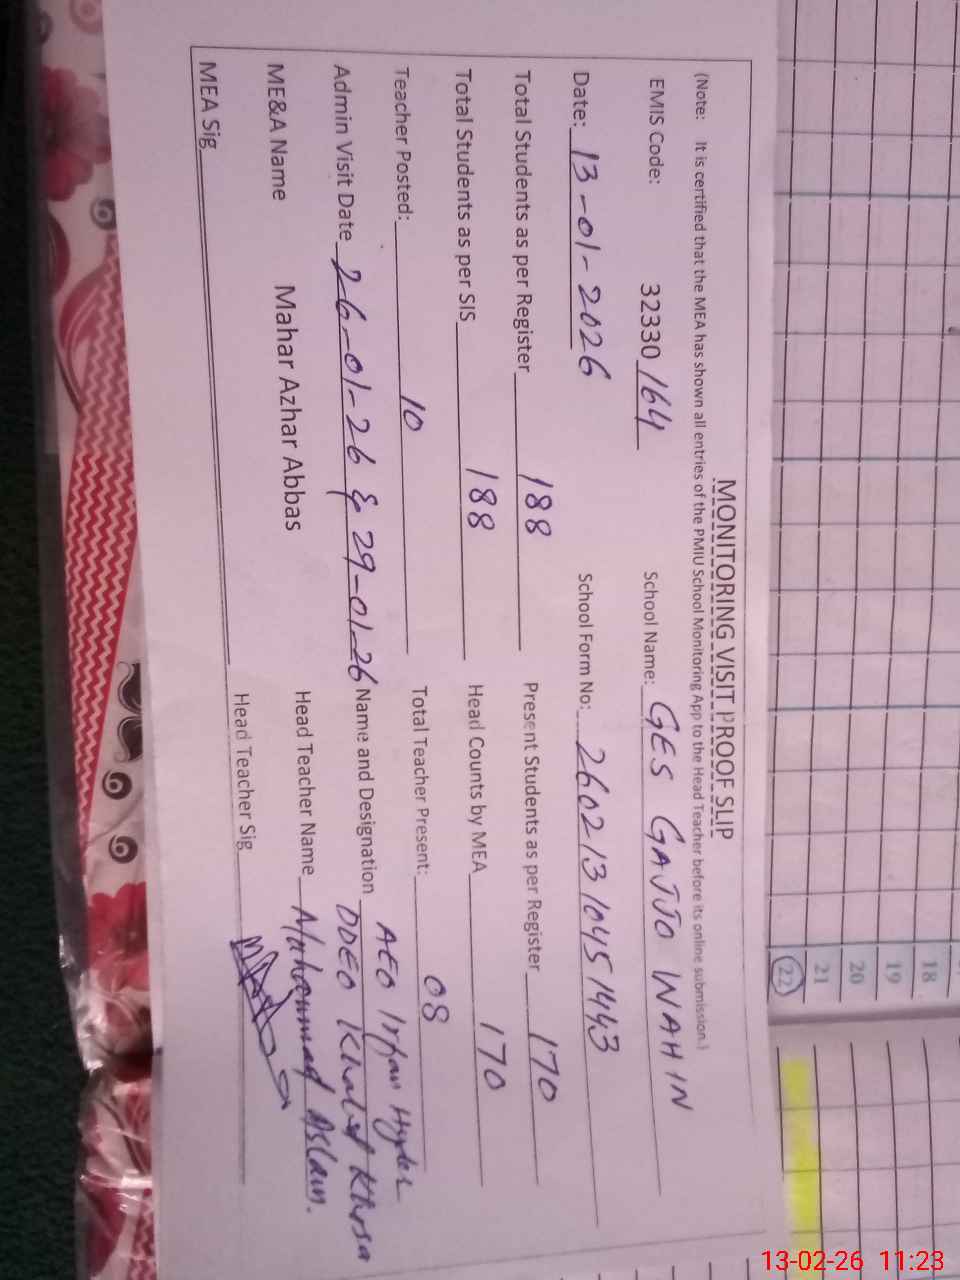 MONITORING VISIT PROOF SLIP
(Note: It is certified that the MEA has shown all entries of the PMIU School Monitoring App to the Head Teacher before its online submission.)
EMIS Code: 32330 164 School Name: GES GAJJO WAH IN
Date: 13-01-2026 School Form No: 26021310451443
Total Students as per Register 188 Present Students as per Register 170
Total Students as per SIS 188 Head Counts by MEA 170
Teacher Posted: 10 Total Teacher Present: 08
Admin Visit Date 26-01-26 & 29-01-26 Name and Designation AEO Irfan Hyder
DDEO Khalid
ME&A Name Mahar Azhar Abbas Head Teacher Name Muhammad Aslam.
MEA Sig Head Teacher Sig
18
19
20
21
22
13-02-26 11:23